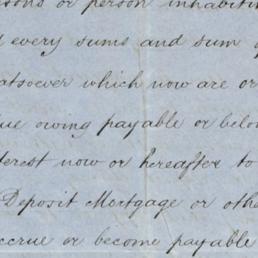 sons or person inhabiting
d every sums and sum of
hatsoever which now are or
ue owing payable or belon
terest now or hereafter to
Deposit Mortgage or othe
ccrue or become payable